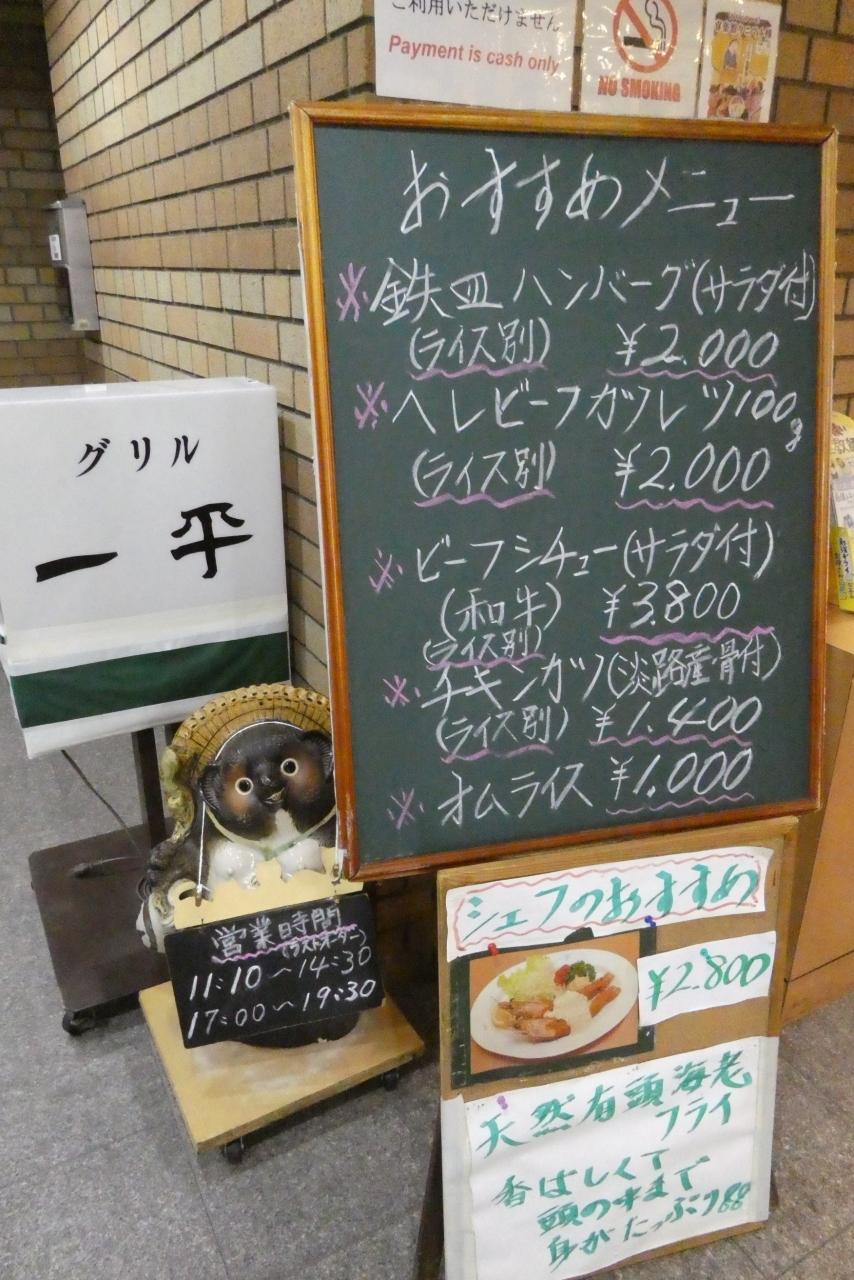 ご利用いただけません
Payment is cash only
NO SMOKING
おすすめメニュー
※鉄皿ハンバーグ(サラダ付)
(ライス別) ¥2.000
※ヘレビーフカツレツ100g
(ライス別) ¥2.000
※ビーフシチュー(サラダ付)
(和牛) ¥3.800
(ライス別)
※チキンカツ(淡路産骨付)
(ライス別) ¥1.400
※オムライス ¥1.000
グリル
一平
営業時間
(ラストオーダー)
11:10〜14:30
17:00〜19:30
シェフのおすすめ
¥2.800
天然有頭海老
フライ
香ばしくて
頭の味まで
身がたっぷり